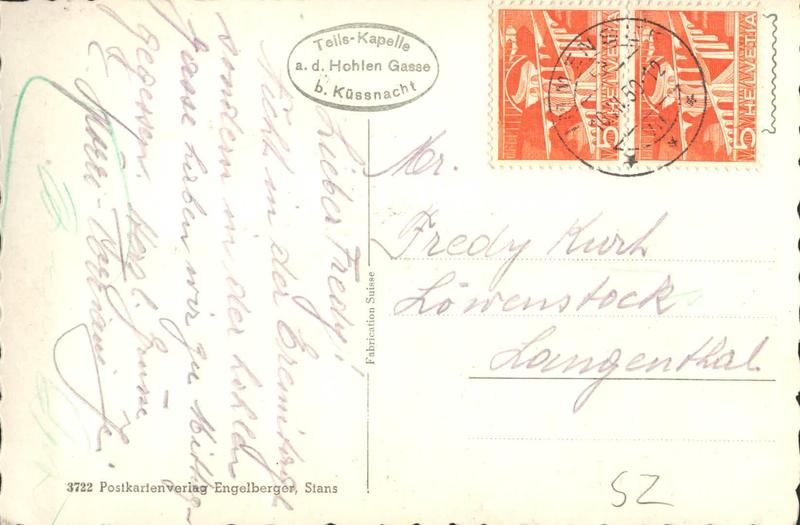 Tells-Kapelle
a. d. Hohlen Gasse
b. Küssnacht
5 HELVETIA
5 HELVETIA
50-12
Lieber Fredy!
Nicht in der Eremitage
sondern in der hohlen
Gasse haben wir zu Mittag
gegessen. Herzl. Grüsse
Mr.
Fredy Kurt
Löwenstock
Langenthal
Fabrication Suisse
3722 Postkartenverlag Engelberger, Stans
SZ